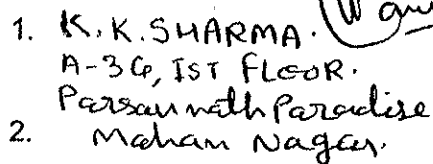 1. K.K.SHARMA.
A-36, IST FLOOR.
Parsavnath Paradise
2. Mohan Nagar.